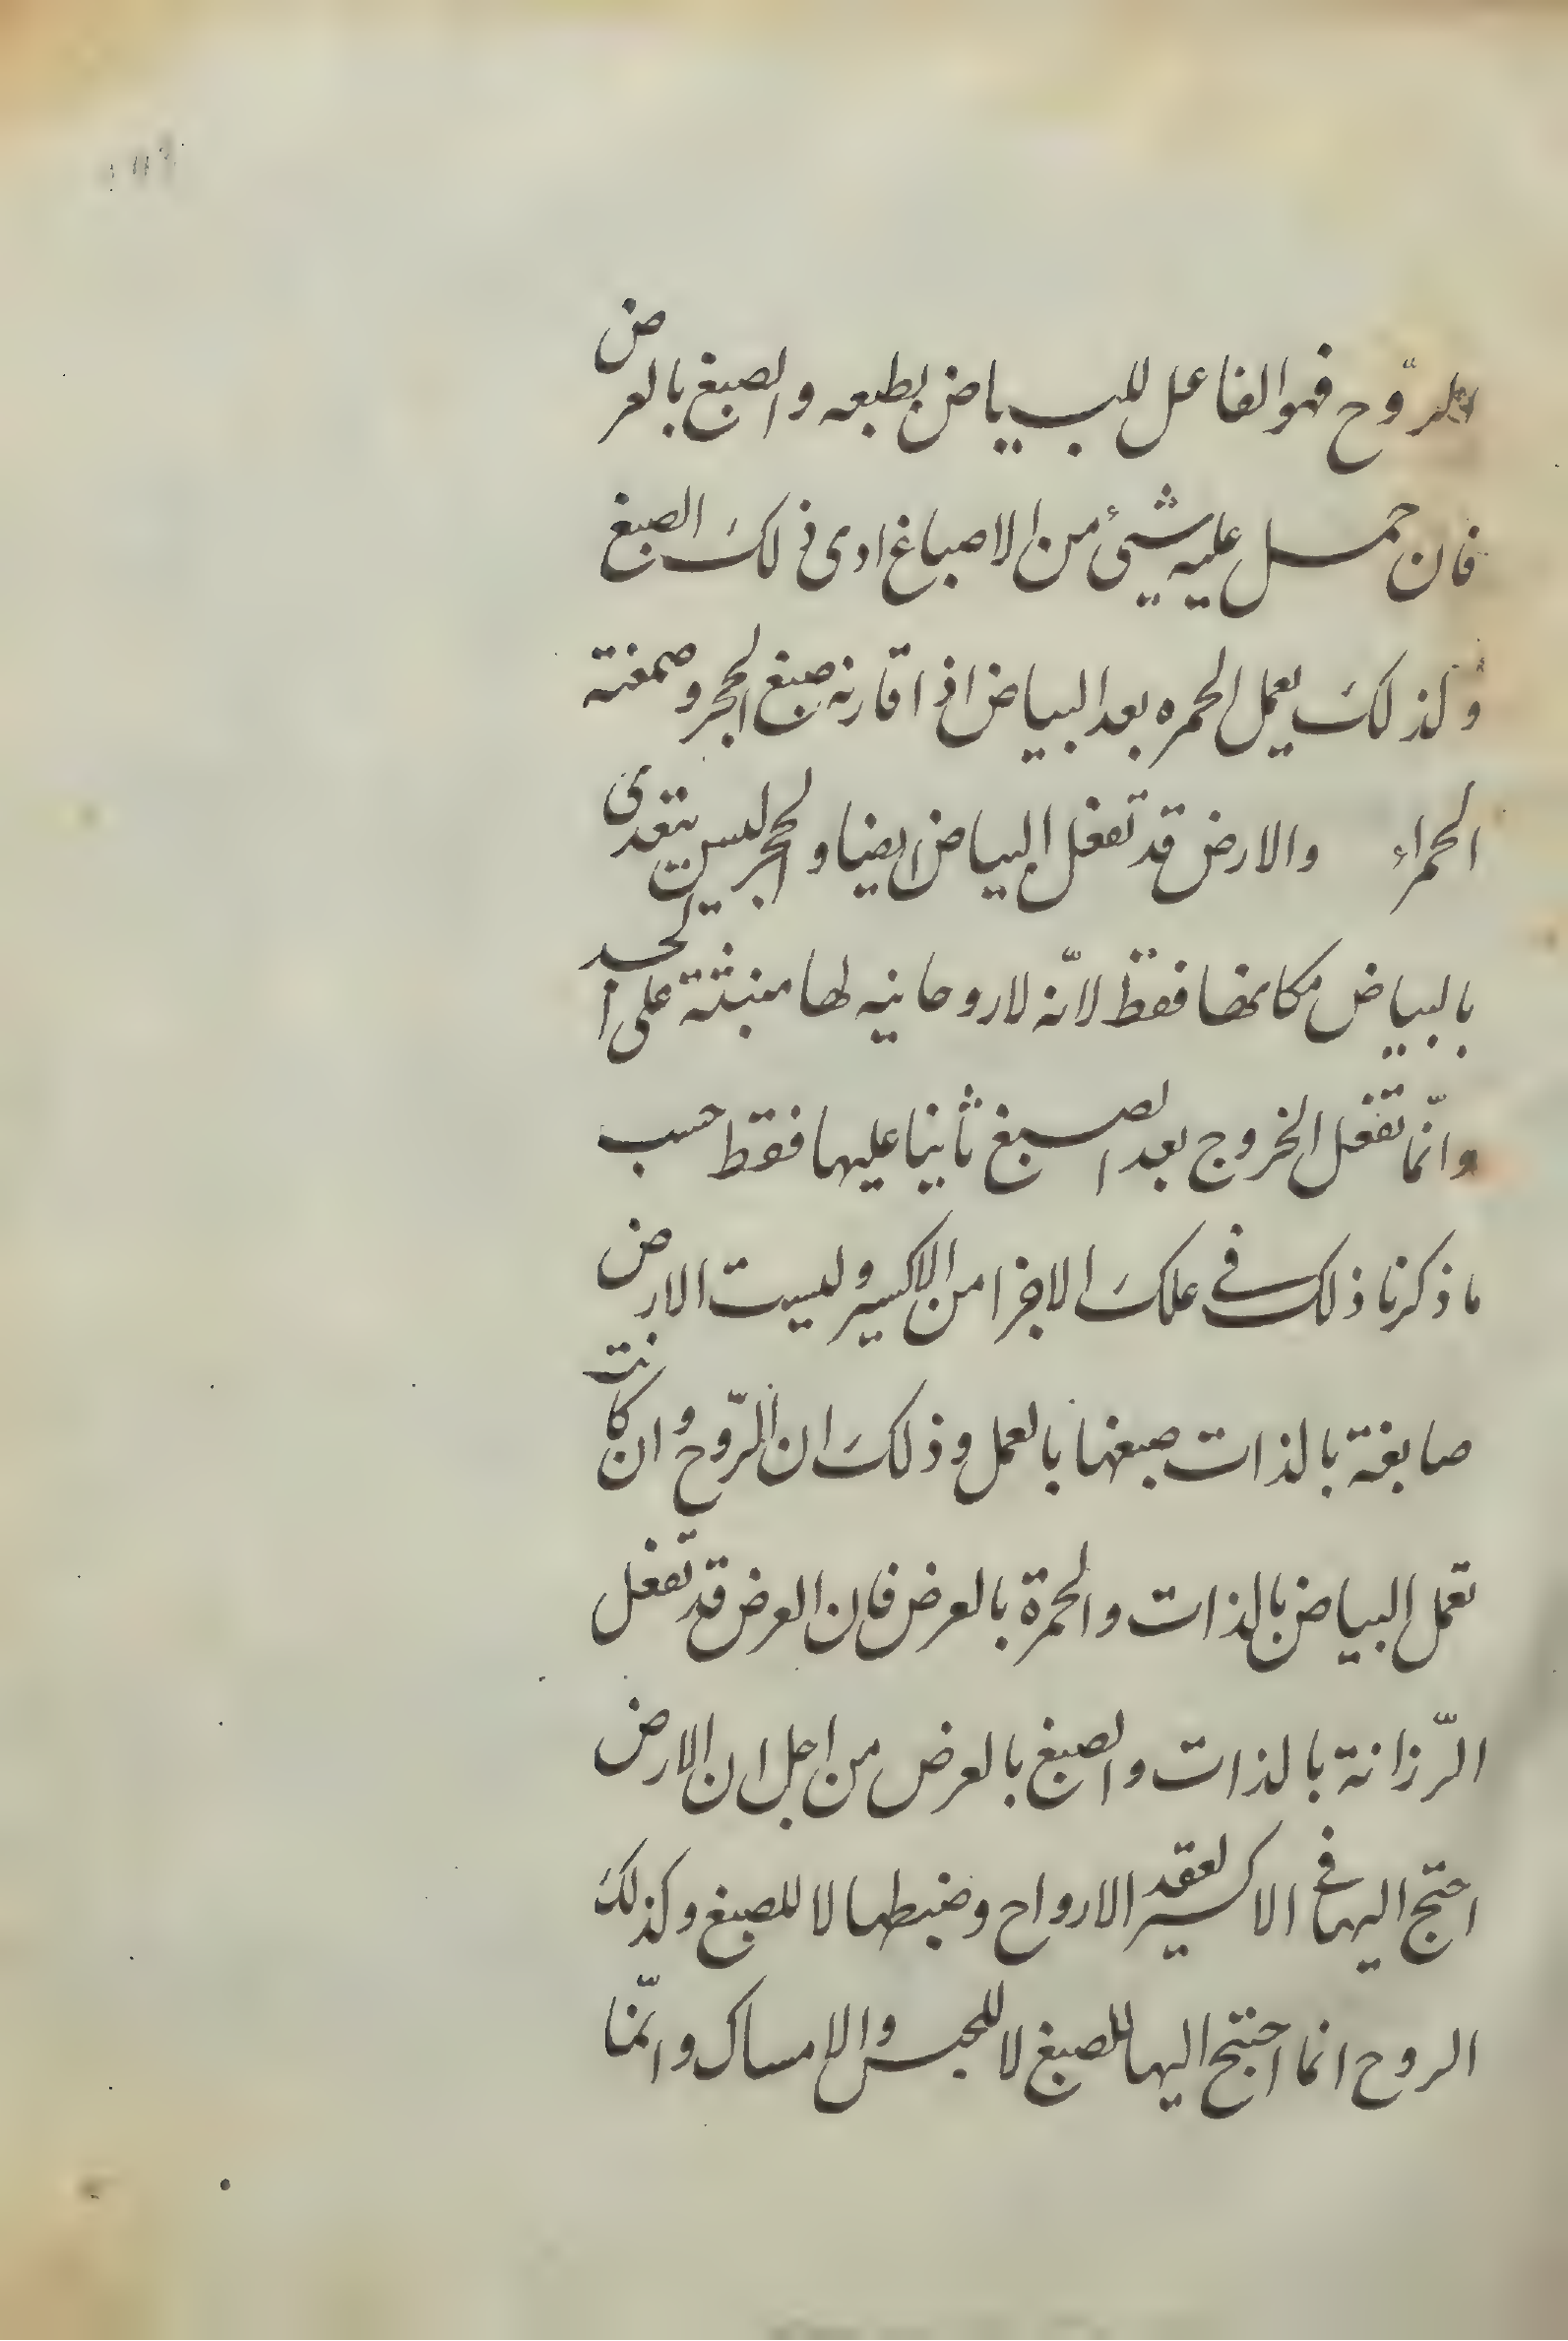 الروّح فهو الفاعل للبياض بطبعه والصبغ بالعرض
فان حمل عليه شيئ من الاصباغ ادى ذلك الصبغ
وكذلك يعمل الحمره بعد البياض اذا قارنه صبغ الحجر وصمغته
الحمراء والارض قد تفعل البياض ايضا والحجر ليس يتعدى
بالبياض مكانها فقط لانّه لا روحانيه لها منبثة على الجسد
وانّما تفعل الخروج بعد الصبغ ثانيا عليها فقط حسب
ما ذكرنا ذلك في علك الاجزا من الاكسير وليست الارض
صابغة بالذات صبغها بالعمل وذلك ان الرّوح وان كانت
تعمل البياض بالذات والحمرة بالعرض فان العرض قد تفعل
الرّزانة بالذات والصبغ بالعرض من اجل ان الارض
احتج اليها في الاكسير لعقد الارواح وضبطها لا للصبغ وكذلك
الروح انما احتتج اليها للصبغ لا للحبس والامساك وانّما